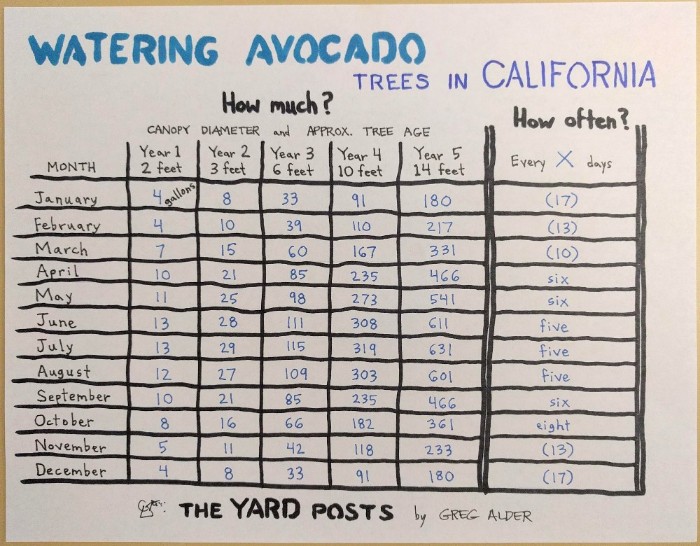 WATERING AVOCADO
TREES IN CALIFORNIA
How much?
How often?
CANOPY DIAMETER and APPROX. TREE AGE
MONTH Year 1 2 feet Year 2 3 feet Year 3 6 feet Year 4 10 feet Year 5 14 feet Every X days
January 4 gallons 8 33 91 180 (17)
February 4 10 39 110 217 (13)
March 7 15 60 167 331 (10)
April 10 21 85 235 466 six
May 11 25 98 273 541 six
June 13 28 111 308 611 five
July 13 29 115 319 631 five
August 12 27 109 303 601 five
September 10 21 85 235 466 six
October 8 16 66 182 361 eight
November 5 11 42 118 233 (13)
December 4 8 33 91 180 (17)
THE YARD POSTS by GREG ALDER